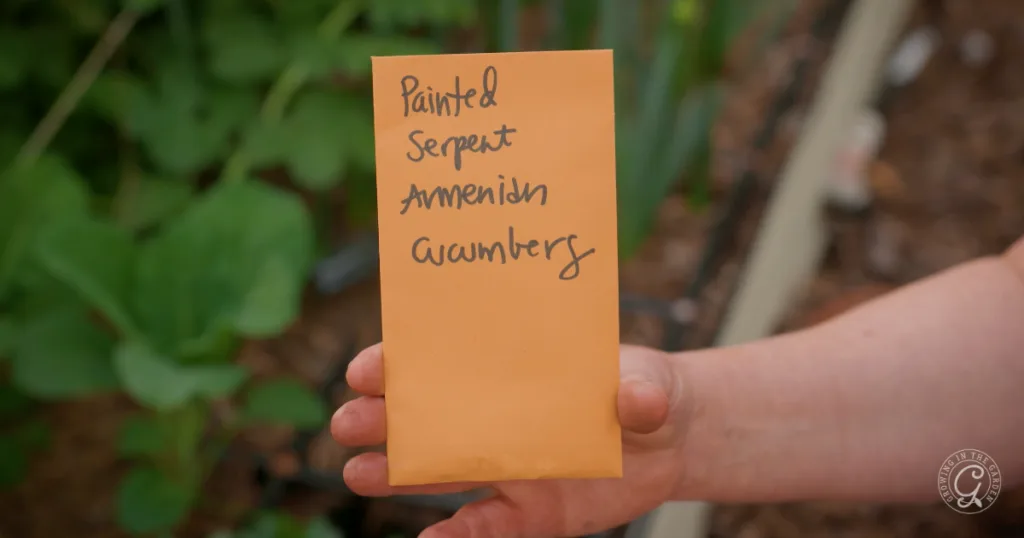 Painted
Serpent
Armenian
Cucumbers
GROWING IN THE GARDEN
G